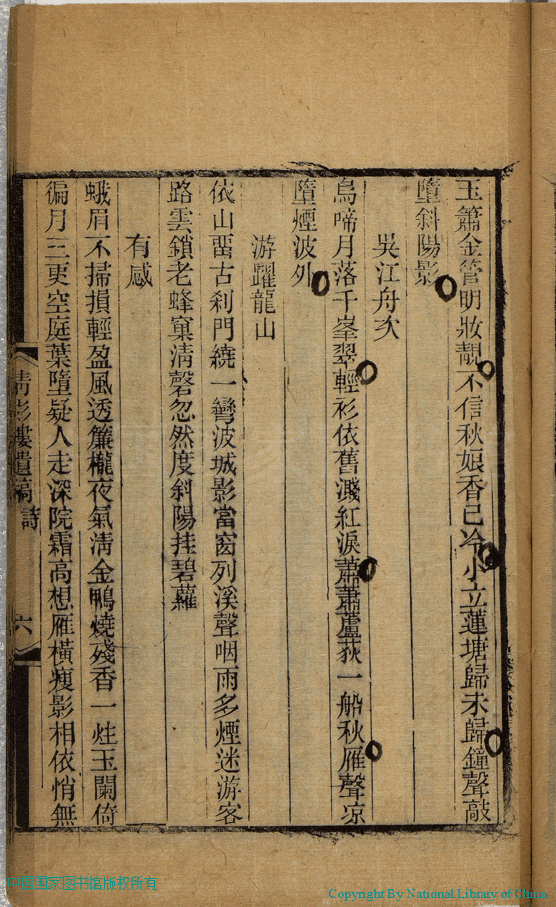 玉簫金管明妝靚不信秋娘香已冷小立蓮塘歸未歸鐘聲敲
墮斜陽影
吳江舟次
烏啼月落千峯翠輕衫依舊濺紅淚蕭蕭蘆荻一船秋雁聲涼
墮煙波外
游躍龍山
依山罶古刹門繞一彎波城影當窗列溪聲咽雨多煙迷游客
路雲鎖老蜂窠淸磬忽然度斜陽挂碧蘿
有感
蛾眉不掃損輕盈風透簾櫳夜氣淸金鴨燒殘香一炷玉闌倚
徧月三更空庭葉墮疑人走深院霜高想雁橫瘦影相依悄無
影樓遺稿 詩 六
中国国家图书馆版权所有
Copyright By National Library of China